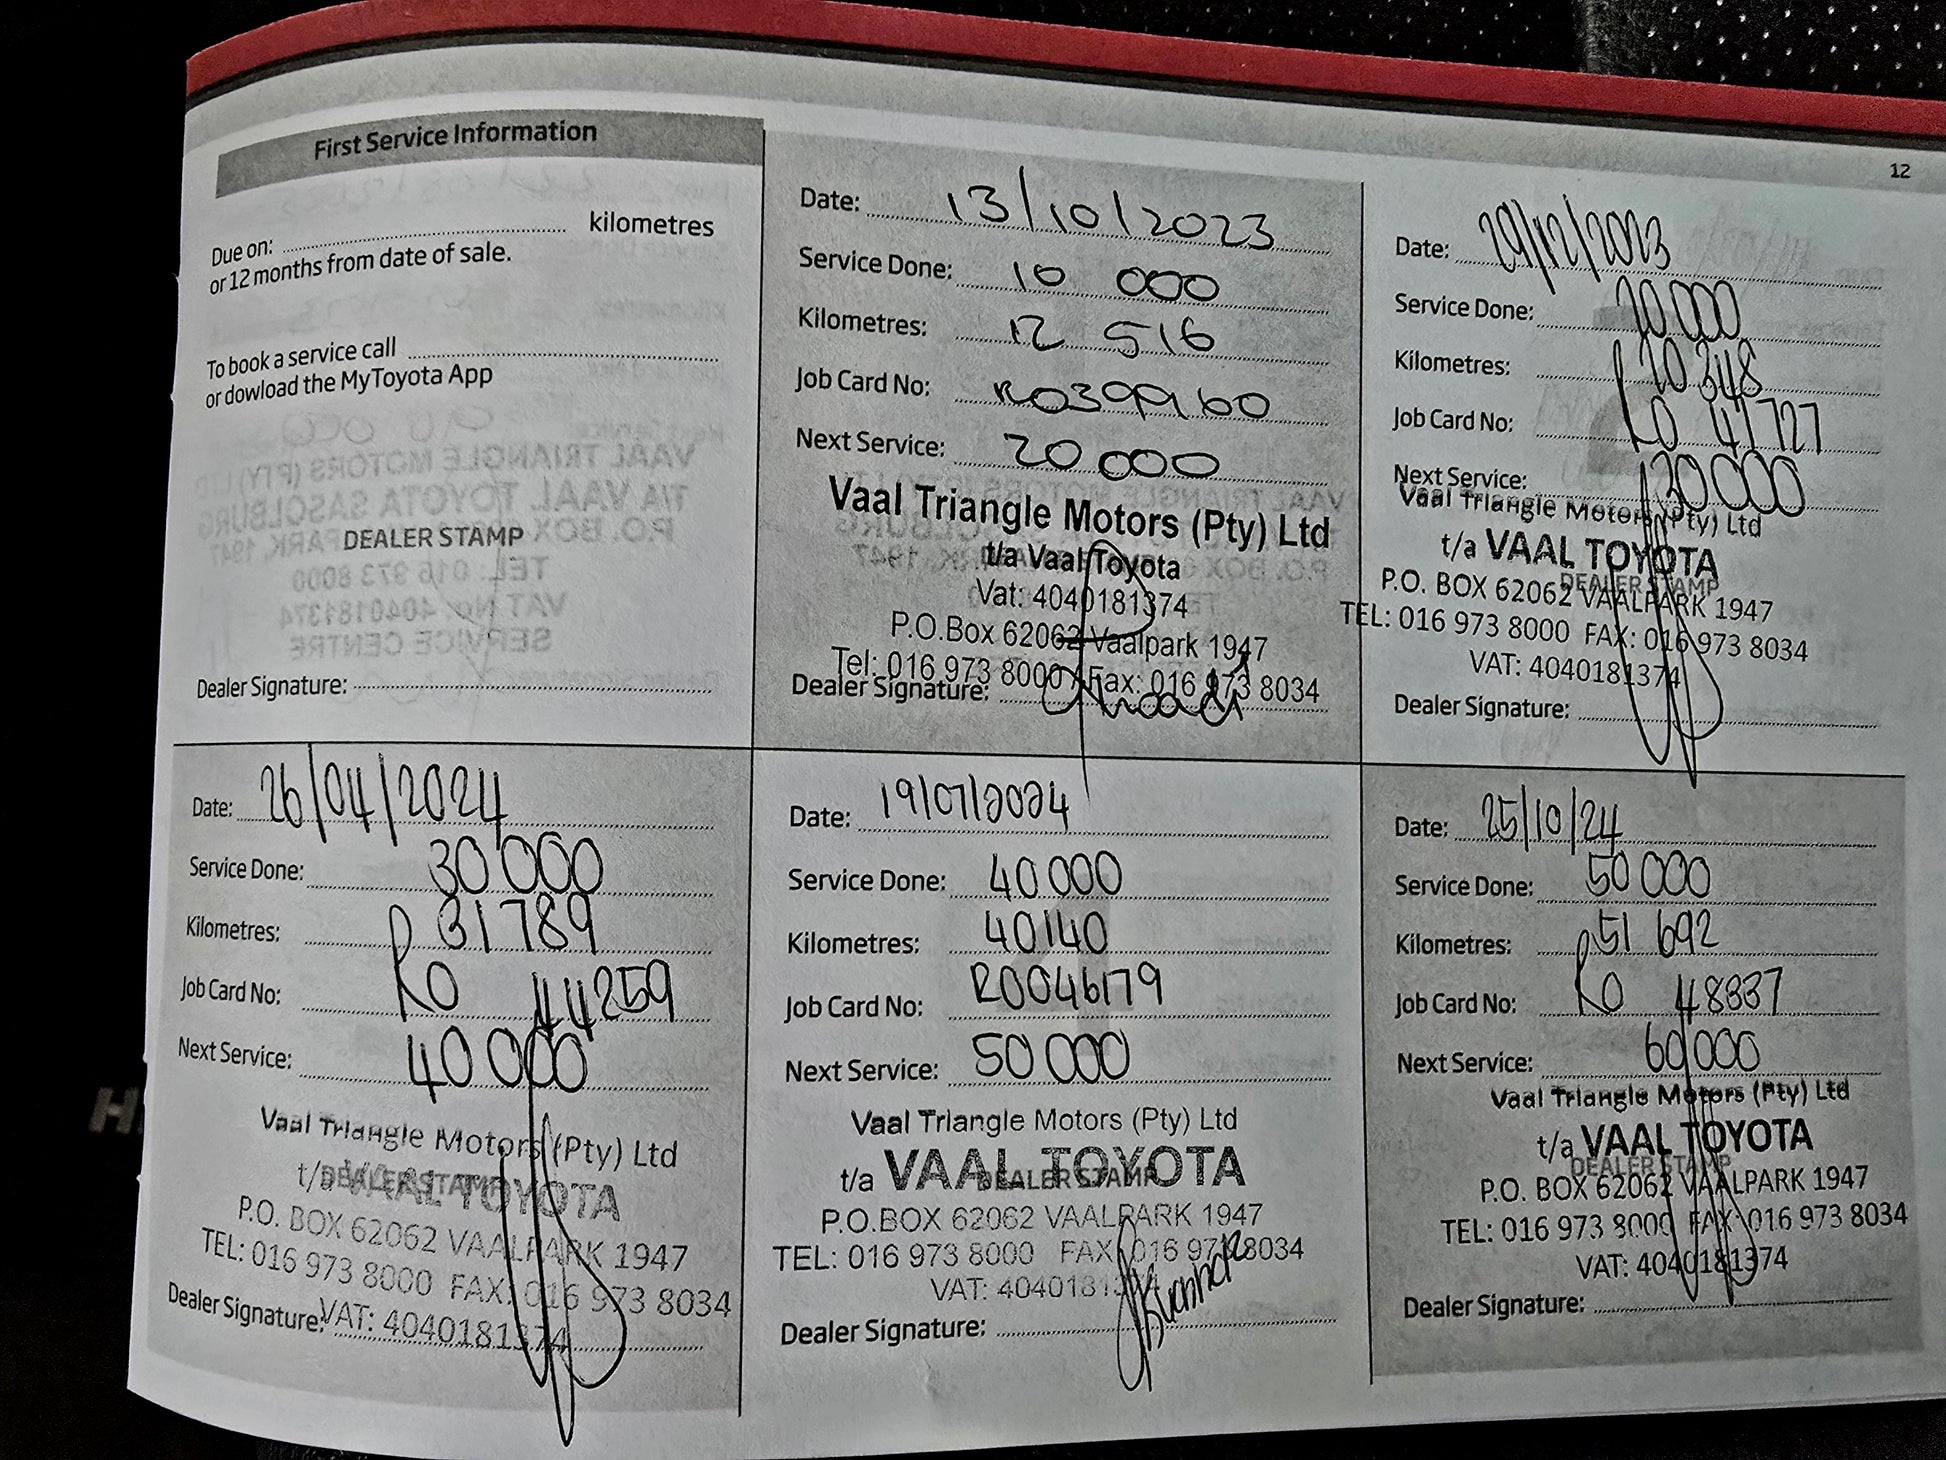 12
First Service Information
Due on: kilometres
or 12 months from date of sale.
To book a service call
or dowload the MyToyota App
DEALER STAMP
Dealer Signature:
Date: 13/10/2023
Service Done: 10 000
Kilometres: 12 516
Job Card No: R0399160
Next Service: 20 000
Vaal Triangle Motors (Pty) Ltd
t/a Vaal Toyota
Vat: 4040181374
P.O.Box 62062 Vaalpark 1947
Tel: 016 973 8000 Fax: 016 973 8034
Dealer Signature:
Date: 29/12/2023
Service Done: 20 000
Kilometres: 20 348
Job Card No: RO 41727
Next Service: 30 000
Vaal Triangle Motors (Pty) Ltd
t/a VAAL TOYOTA
DEALER STAMP
P.O. BOX 62062 VAALPARK 1947
TEL: 016 973 8000 FAX: 016 973 8034
VAT: 4040181374
Dealer Signature:
Date: 26/04/2024
Service Done: 30 000
Kilometres: 31 789
Job Card No: RO 44259
Next Service: 40 000
Vaal Triangle Motors (Pty) Ltd
t/a VAAL TOYOTA
DEALER STAMP
P.O. BOX 62062 VAALPARK 1947
TEL: 016 973 8000 FAX: 016 973 8034
Dealer Signature: VAT: 4040181374
Date: 19/07/2024
Service Done: 40 000
Kilometres: 40140
Job Card No: R0046179
Next Service: 50 000
Vaal Triangle Motors (Pty) Ltd
t/a VAAL TOYOTA
DEALER STAMP
P.O.BOX 62062 VAALPARK 1947
TEL: 016 973 8000 FAX: 016 973 8034
VAT: 4040181374
Dealer Signature:
Date: 25/10/24
Service Done: 50 000
Kilometres: 51 692
Job Card No: RO 48837
Next Service: 60 000
Vaal Triangle Motors (Pty) Ltd
t/a VAAL TOYOTA
DEALER STAMP
P.O. BOX 62062 VAALPARK 1947
TEL: 016 973 8000 FAX: 016 973 8034
VAT: 4040181374
Dealer Signature: